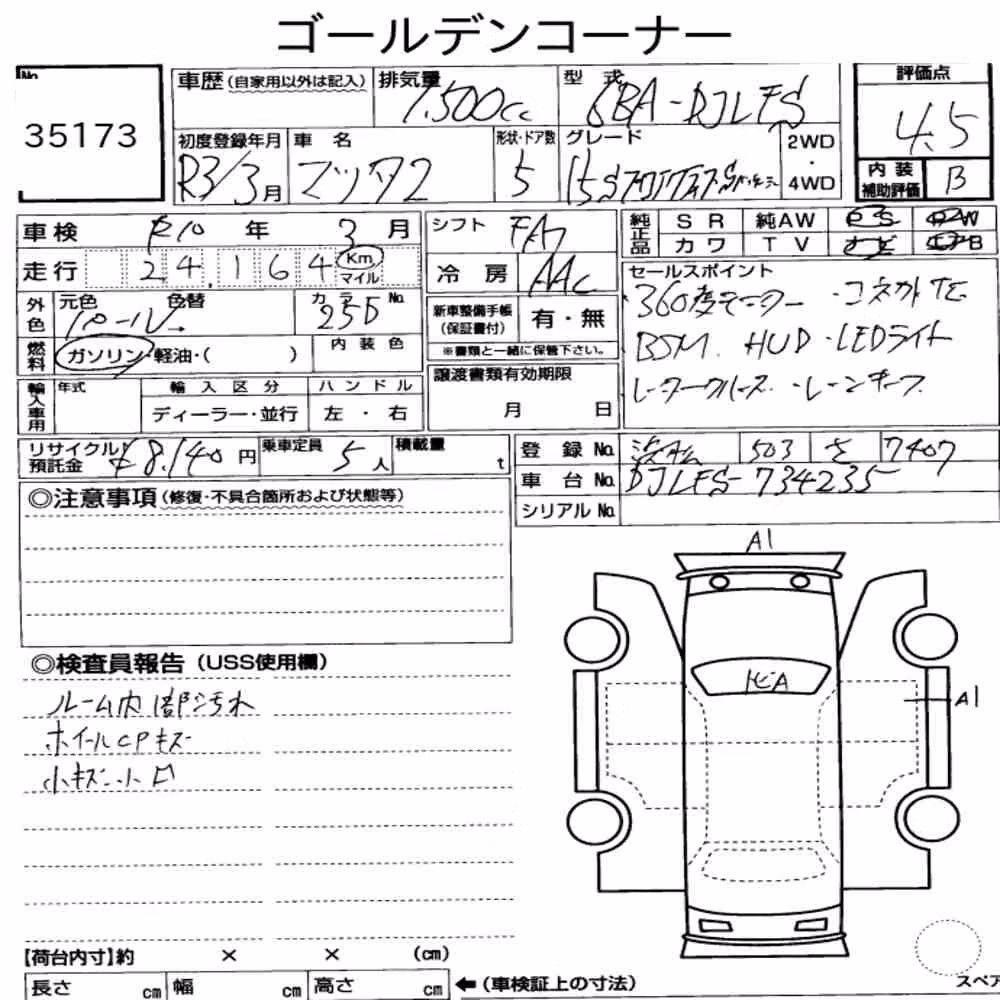 ゴールデンコーナー
No.
35173
車歴 (自家用以外は記入)
排気量 1,500cc
型式 6BA-DJLFS
評価点 4.5
初度登録年月 R3/3月
車名 マツダ2
形状・ドア数 5
グレード 15S
2WD・4WD
内装補助評価 B
車検 R10年 3月
シフト FA
純正品 SR 純AW PS PW
カワ TV ナビ
走行 24,164 Km マイル
冷房 AAC
セールスポイント
360度モニター・コネクトTE
BSM. HUD・LEDライト
レーダークルーズ・レーンキープ
外色 元色 パール 色替 カラーNo. 25D
新車整備手帳(保証書付) 有・無
※書類と一緒に保管下さい。
燃料 ガソリン・軽油・( ) 内装色
譲渡書類有効期限
月 日
輸入車用 年式 輸入区分 ハンドル
ディーラー・並行 左・右
リサイクル預託金 ¥8,140円 乗車定員 5人 積載量 t
登録No. 浜松 503 さ 7407
車台No. DJLFS-734235
シリアルNo.
◎注意事項 (修復・不具合箇所および状態等)
A1
◎検査員報告 (USS使用欄)
ルーム内 内部汚れ
ホイールCPキズ
小キズ小凹
A
A1
【荷台内寸】約 × × (cm)
長さ cm 幅 cm 高さ cm ←(車検証上の寸法)
スペア